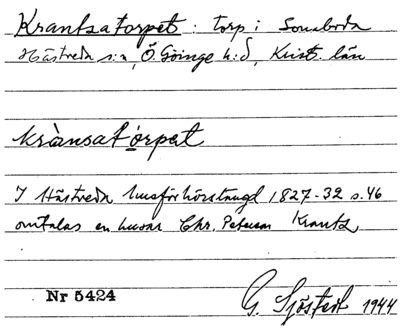 Krantzatorpet: torp i Sonnboda
Hästveda s:n, Ö. Göinge h:d, Krist. län
krànsatå̀rpet
I Hästveda husförhörslängd 1827-32 s. 46
omtalas en husar Chr. Peterson Krantz
Nr 5424
G. Sjöstedt 1944